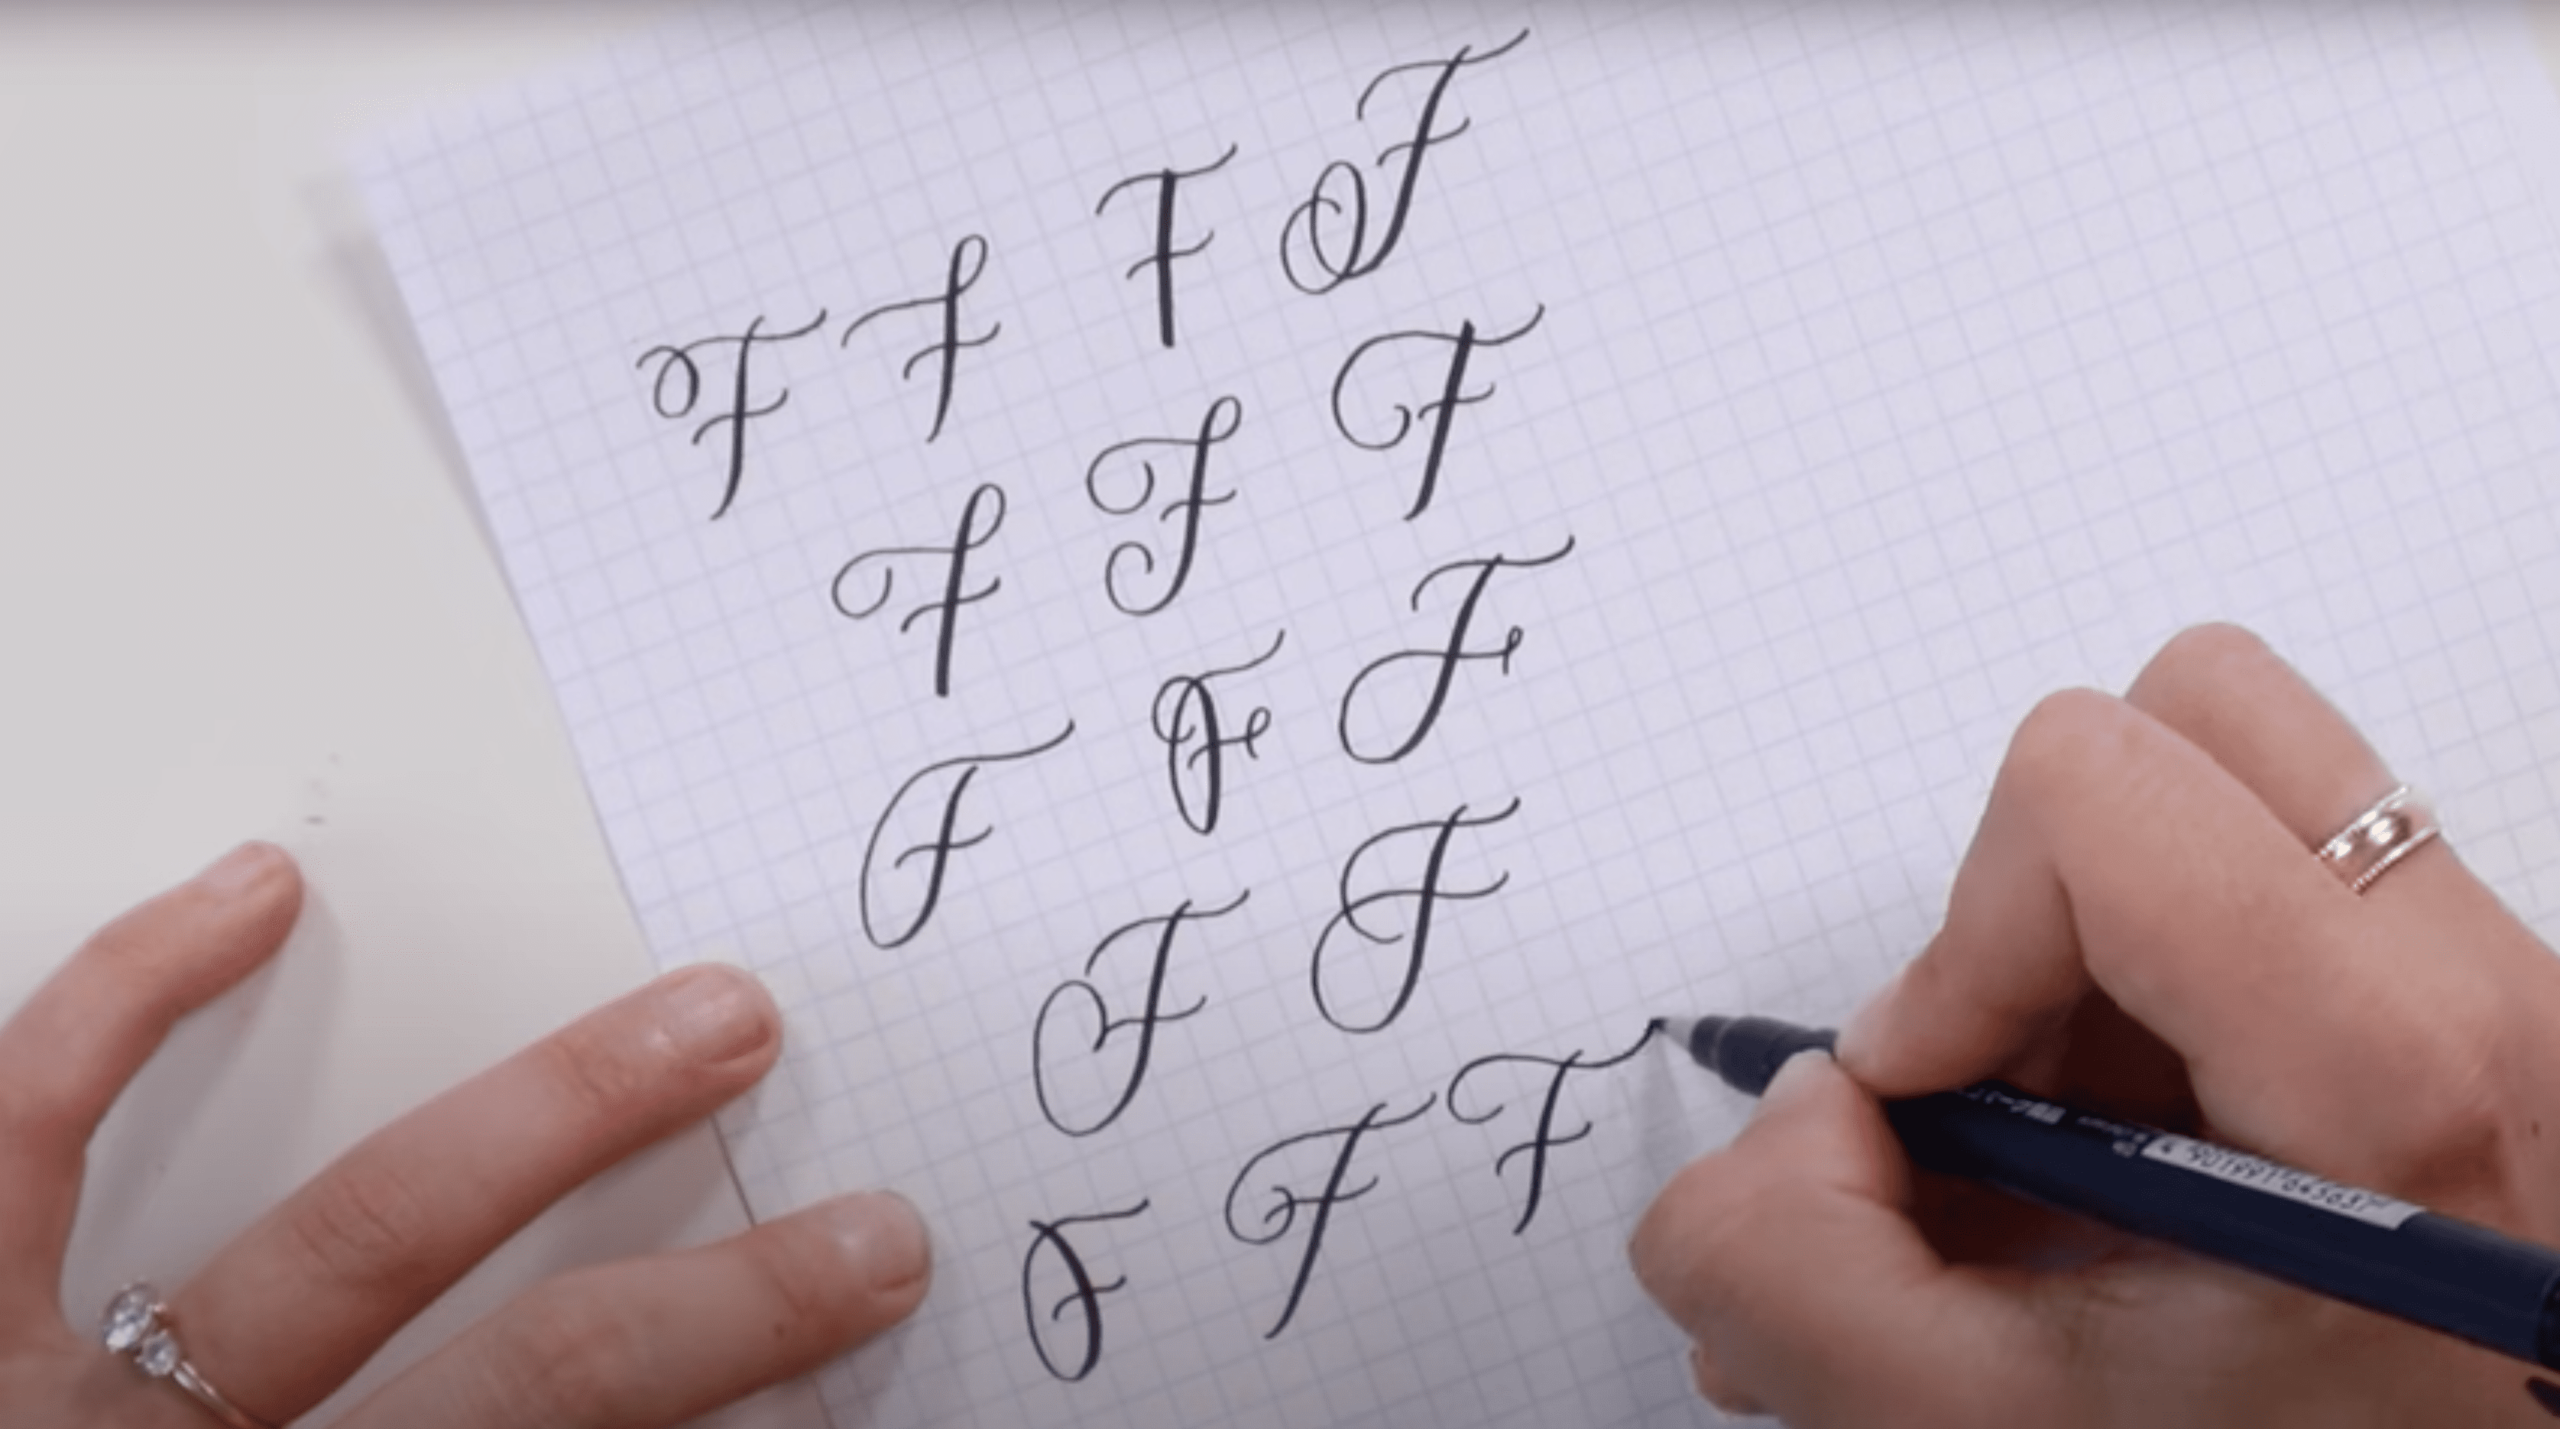 F F F F
F F F
F F F
F F
F F F
4 901991 645637